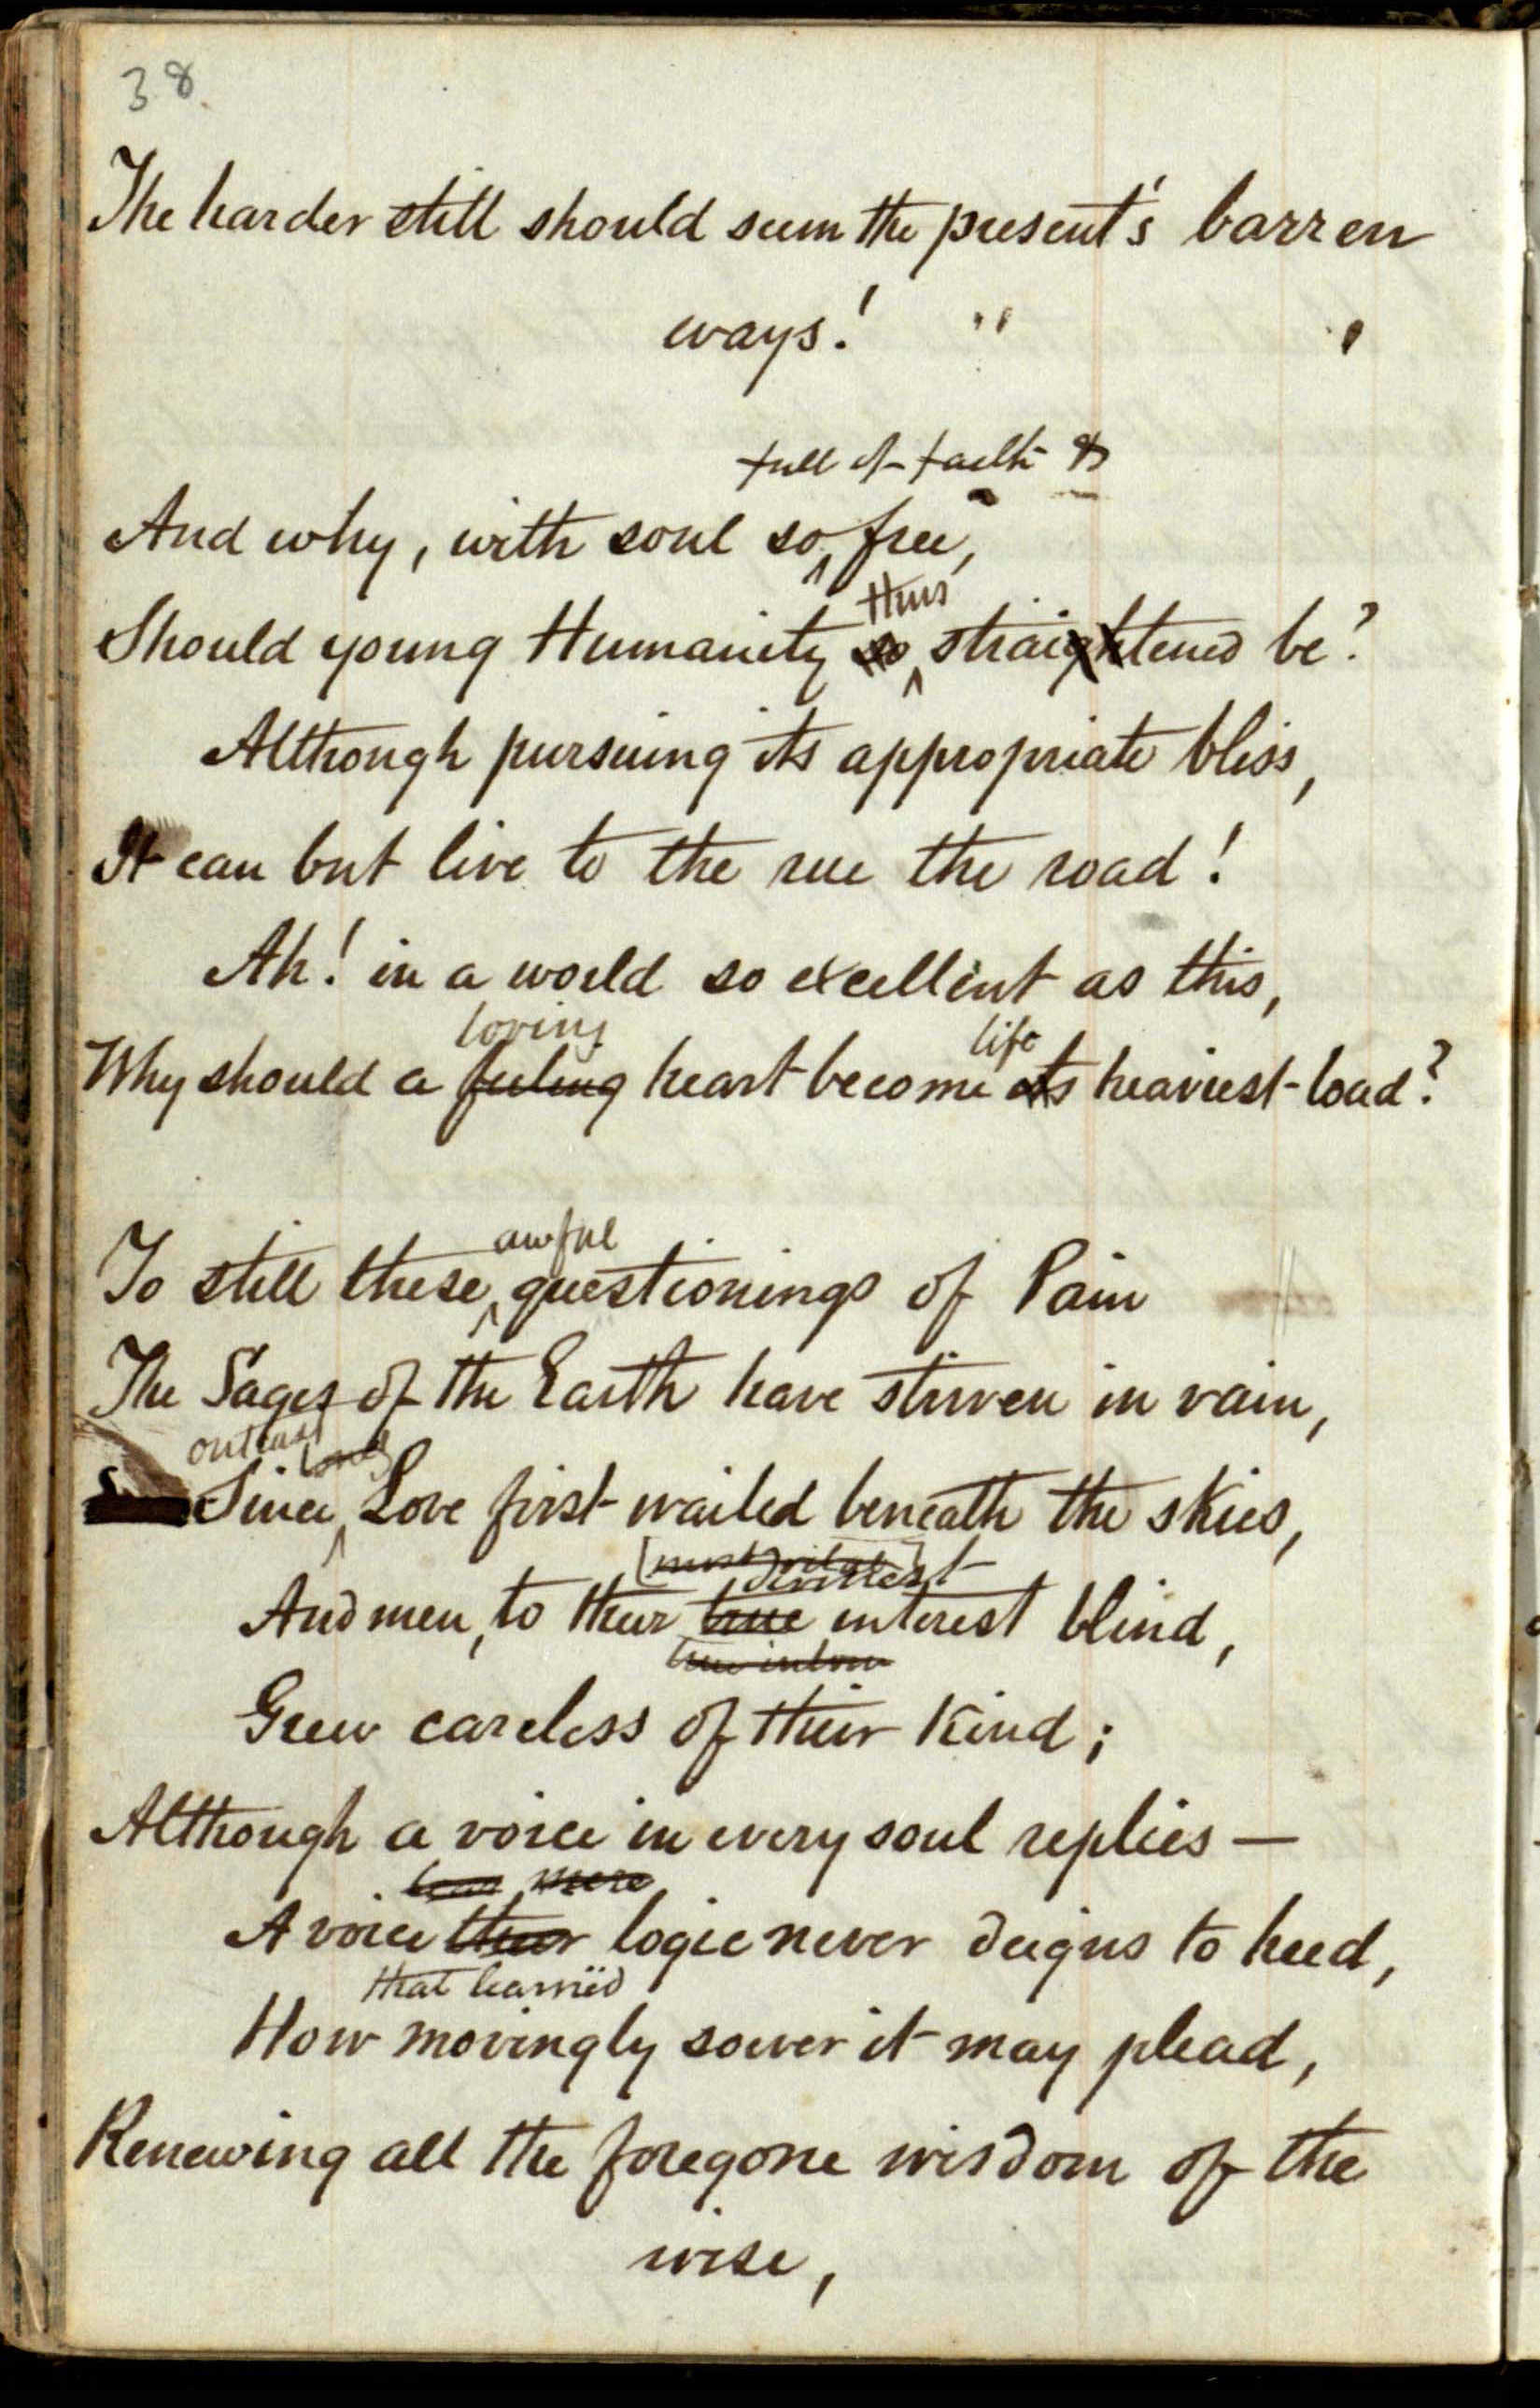 38.
The harder still should seem the present's barren
ways!
full of faith &
And why, with soul so free,
thus
Should young Humanity so straightened be?
Although pursuing its appropriate bliss,
It can but live to the rue the road!
Ah! in a world so excellent as this,
loving life
Why should a feeling heart become its heaviest load?
awful
To still these questionings of Pain
The Sages of the Earth have striven in vain,
outcast
Since Love first wailed beneath the skies,
[most vital]
divinest
And men, to their true interest blind,
true
Grew careless of their kind;
Although a voice in every soul replies —
mere
A voice their logic never deigns to heed,
that learnëd
How movingly soever it may plead,
Renewing all the foregone wisdom of the
wise,